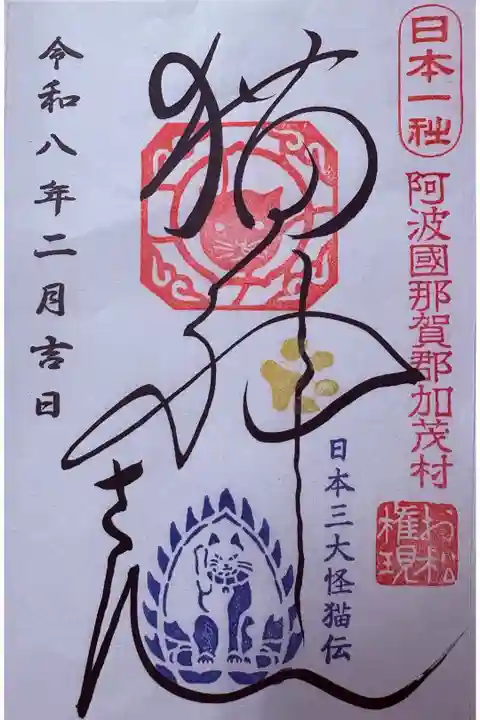 日本一社
阿波國那賀郡加茂村
お松
権現
猫神さん
日本三大怪猫伝
令和八年二月吉日